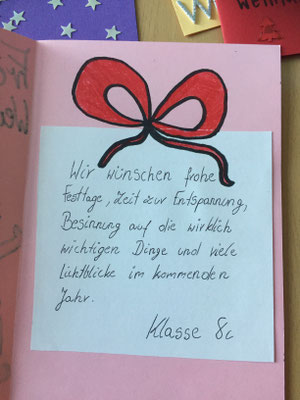 Wir wünschen frohe
Festtage, Zeit zur Entspannung,
Besinnung auf die wirklich
wichtigen Dinge und viele
Lichtblicke im kommenden
Jahr.
Klasse 8c